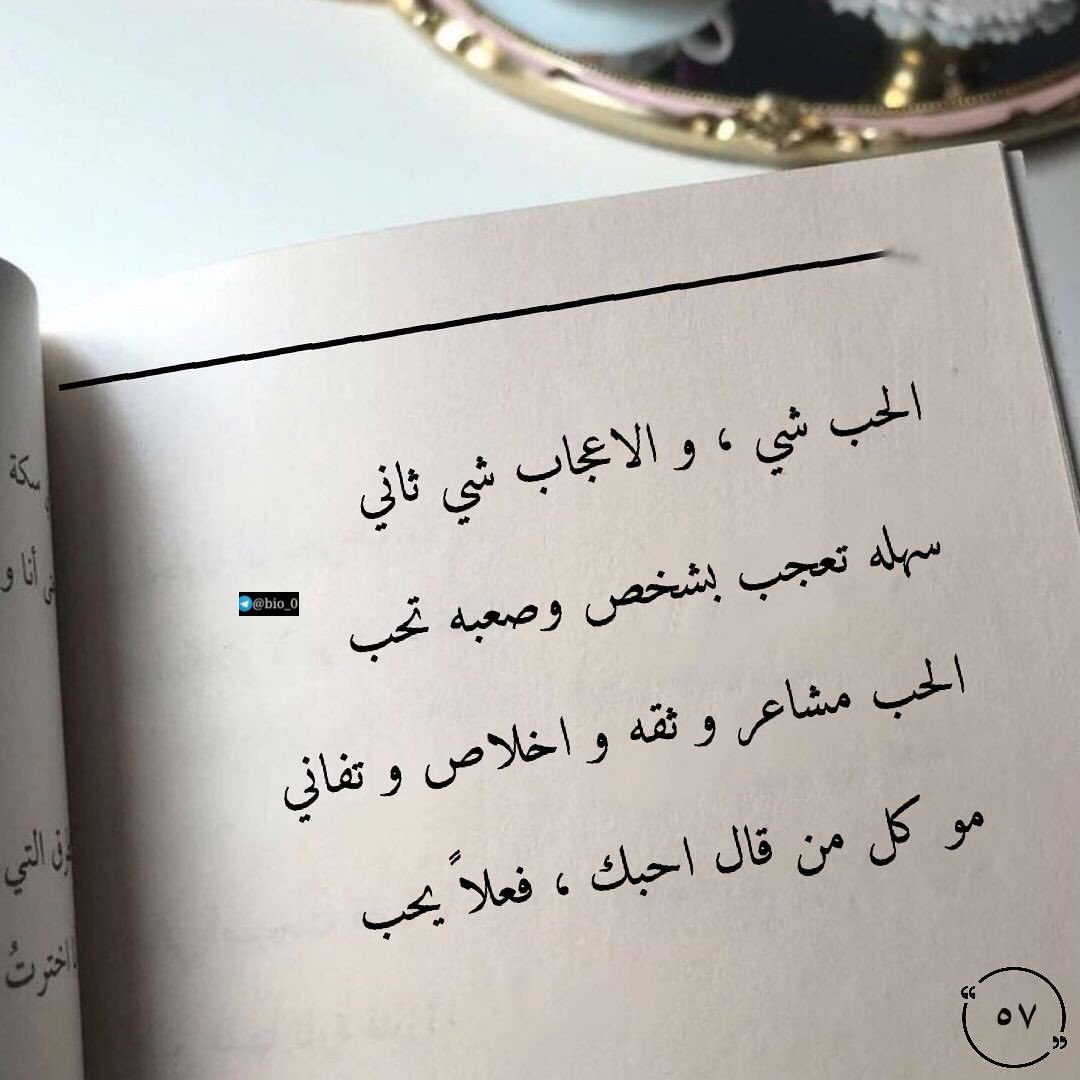 الحب شي ، و الاعجاب شي ثاني
سهله تعجب بشخص وصعبه تحب
الحب مشاعر و ثقه و اخلاص و تفاني
مو كل من قال احبك ، فعلاً يحب
@bio_0
٥٧
سكة
أنا و
التي
اخترتُ